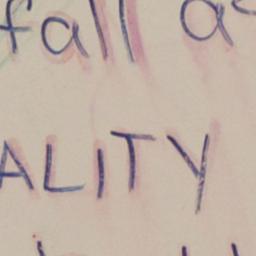 fall as
ALITY